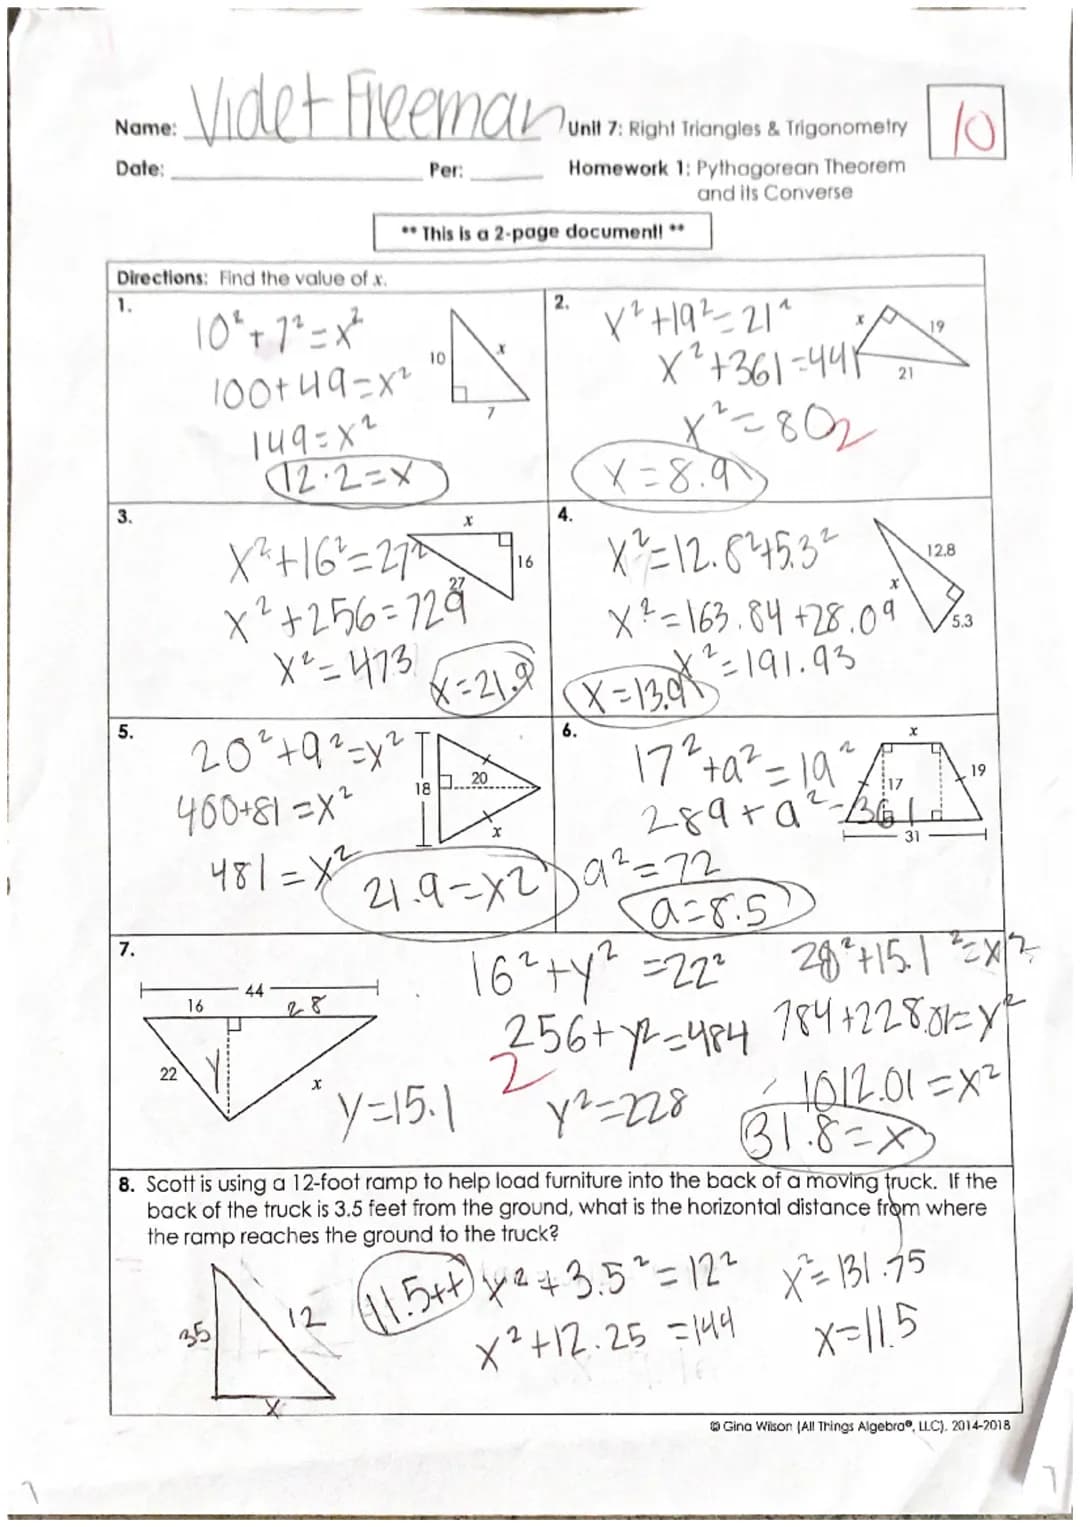 Name: Violet Freeman
Unit 7: Right Triangles & Trigonometry
10
Date: Per:
Homework 1: Pythagorean Theorem
and its Converse
** This is a 2-page document! **
Directions: Find the value of x.
1.
10² + 7² = x²
100 + 49 = x²
149 = x²
12.2 = x
10
x
7
2.
x² + 19² = 21²
x² + 361 = 441
x² = 80
2
x = 8.9
x
19
21
3.
x² + 16² = 27²
x² + 256 = 729
x² = 473
x = 21.9
x
16
27
4.
x² = 12.8² + 5.3²
x² = 163.84 + 28.09
x² = 191.93
x = 13.9
12.8
x
5.3
5.
20² + 9² = x²
400 + 81 = x²
481 = x²
21.9 = x2
18
20
x
6.
17² + a² = 19²
289 + a² = 361
a² = 72
a = 8.5
x
17
19
31
7.
44
16 28
22
y
x
16² + y² = 22²
256 + y² = 484
2
y² = 228
y = 15.1
28² + 15.1² = x²
784 + 228.01 = x²
1012.01 = x²
31.8 = x
8. Scott is using a 12-foot ramp to help load furniture into the back of a moving truck. If the
back of the truck is 3.5 feet from the ground, what is the horizontal distance from where
the ramp reaches the ground to the truck?
35
12
x
11.5ft
x² + 3.5² = 12²
x² + 12.25 = 144
x² = 131.75
x = 11.5
© Gina Wilson (All Things Algebra®, LLC), 2014-2018